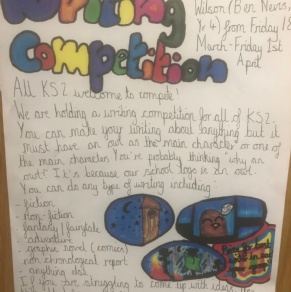 Writing
Competition
Wilson (Ben Nevis,
Yr 4) from Friday 18
March - Friday 1st
April
All KS2 welcome to compete!
We are holding a writing competition for all of KS2.
You can make your writing about anything but it
must have an owl as the main character or one of
the main characters. You're probably thinking 'why an
owl?' It's because our school logo is an owl.
You can do any type of writing including:
· fiction
· non-fiction
· fantasy / fairytale
· adventure
· graphic novel (comics)
· non chronological report
· anything else.
If you are struggling to come up with ideas,